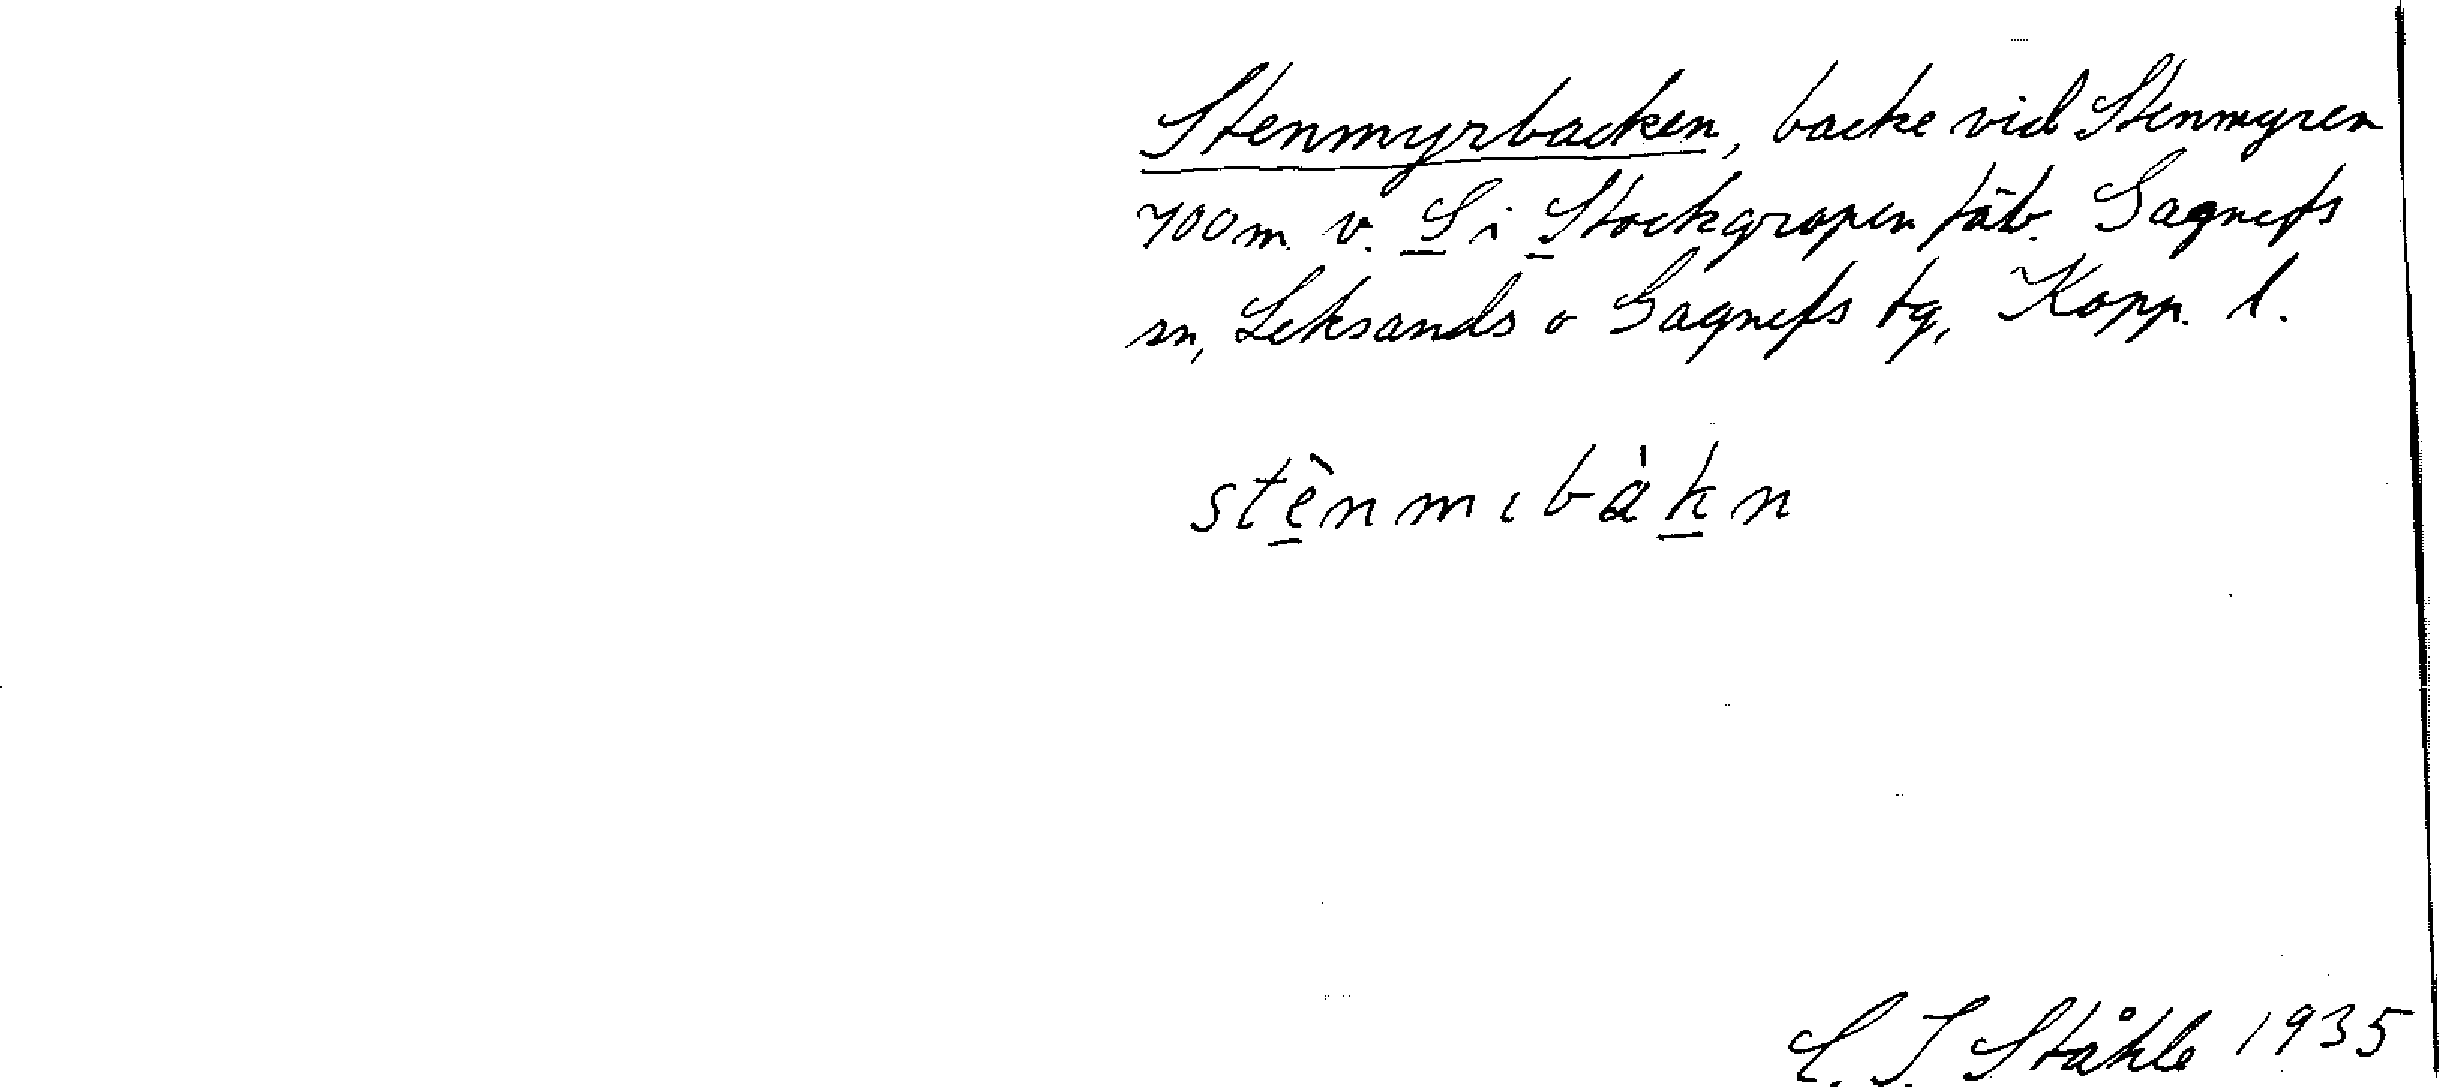 Stenmyrbacken, backe vid Stenmyren
700 m. v. S i Stockgropen fäb. Gagnefs
sn, Leksands o Gagnefs tg, Kopp. l.
stènmıbàkn
C. I. Ståhle 1935